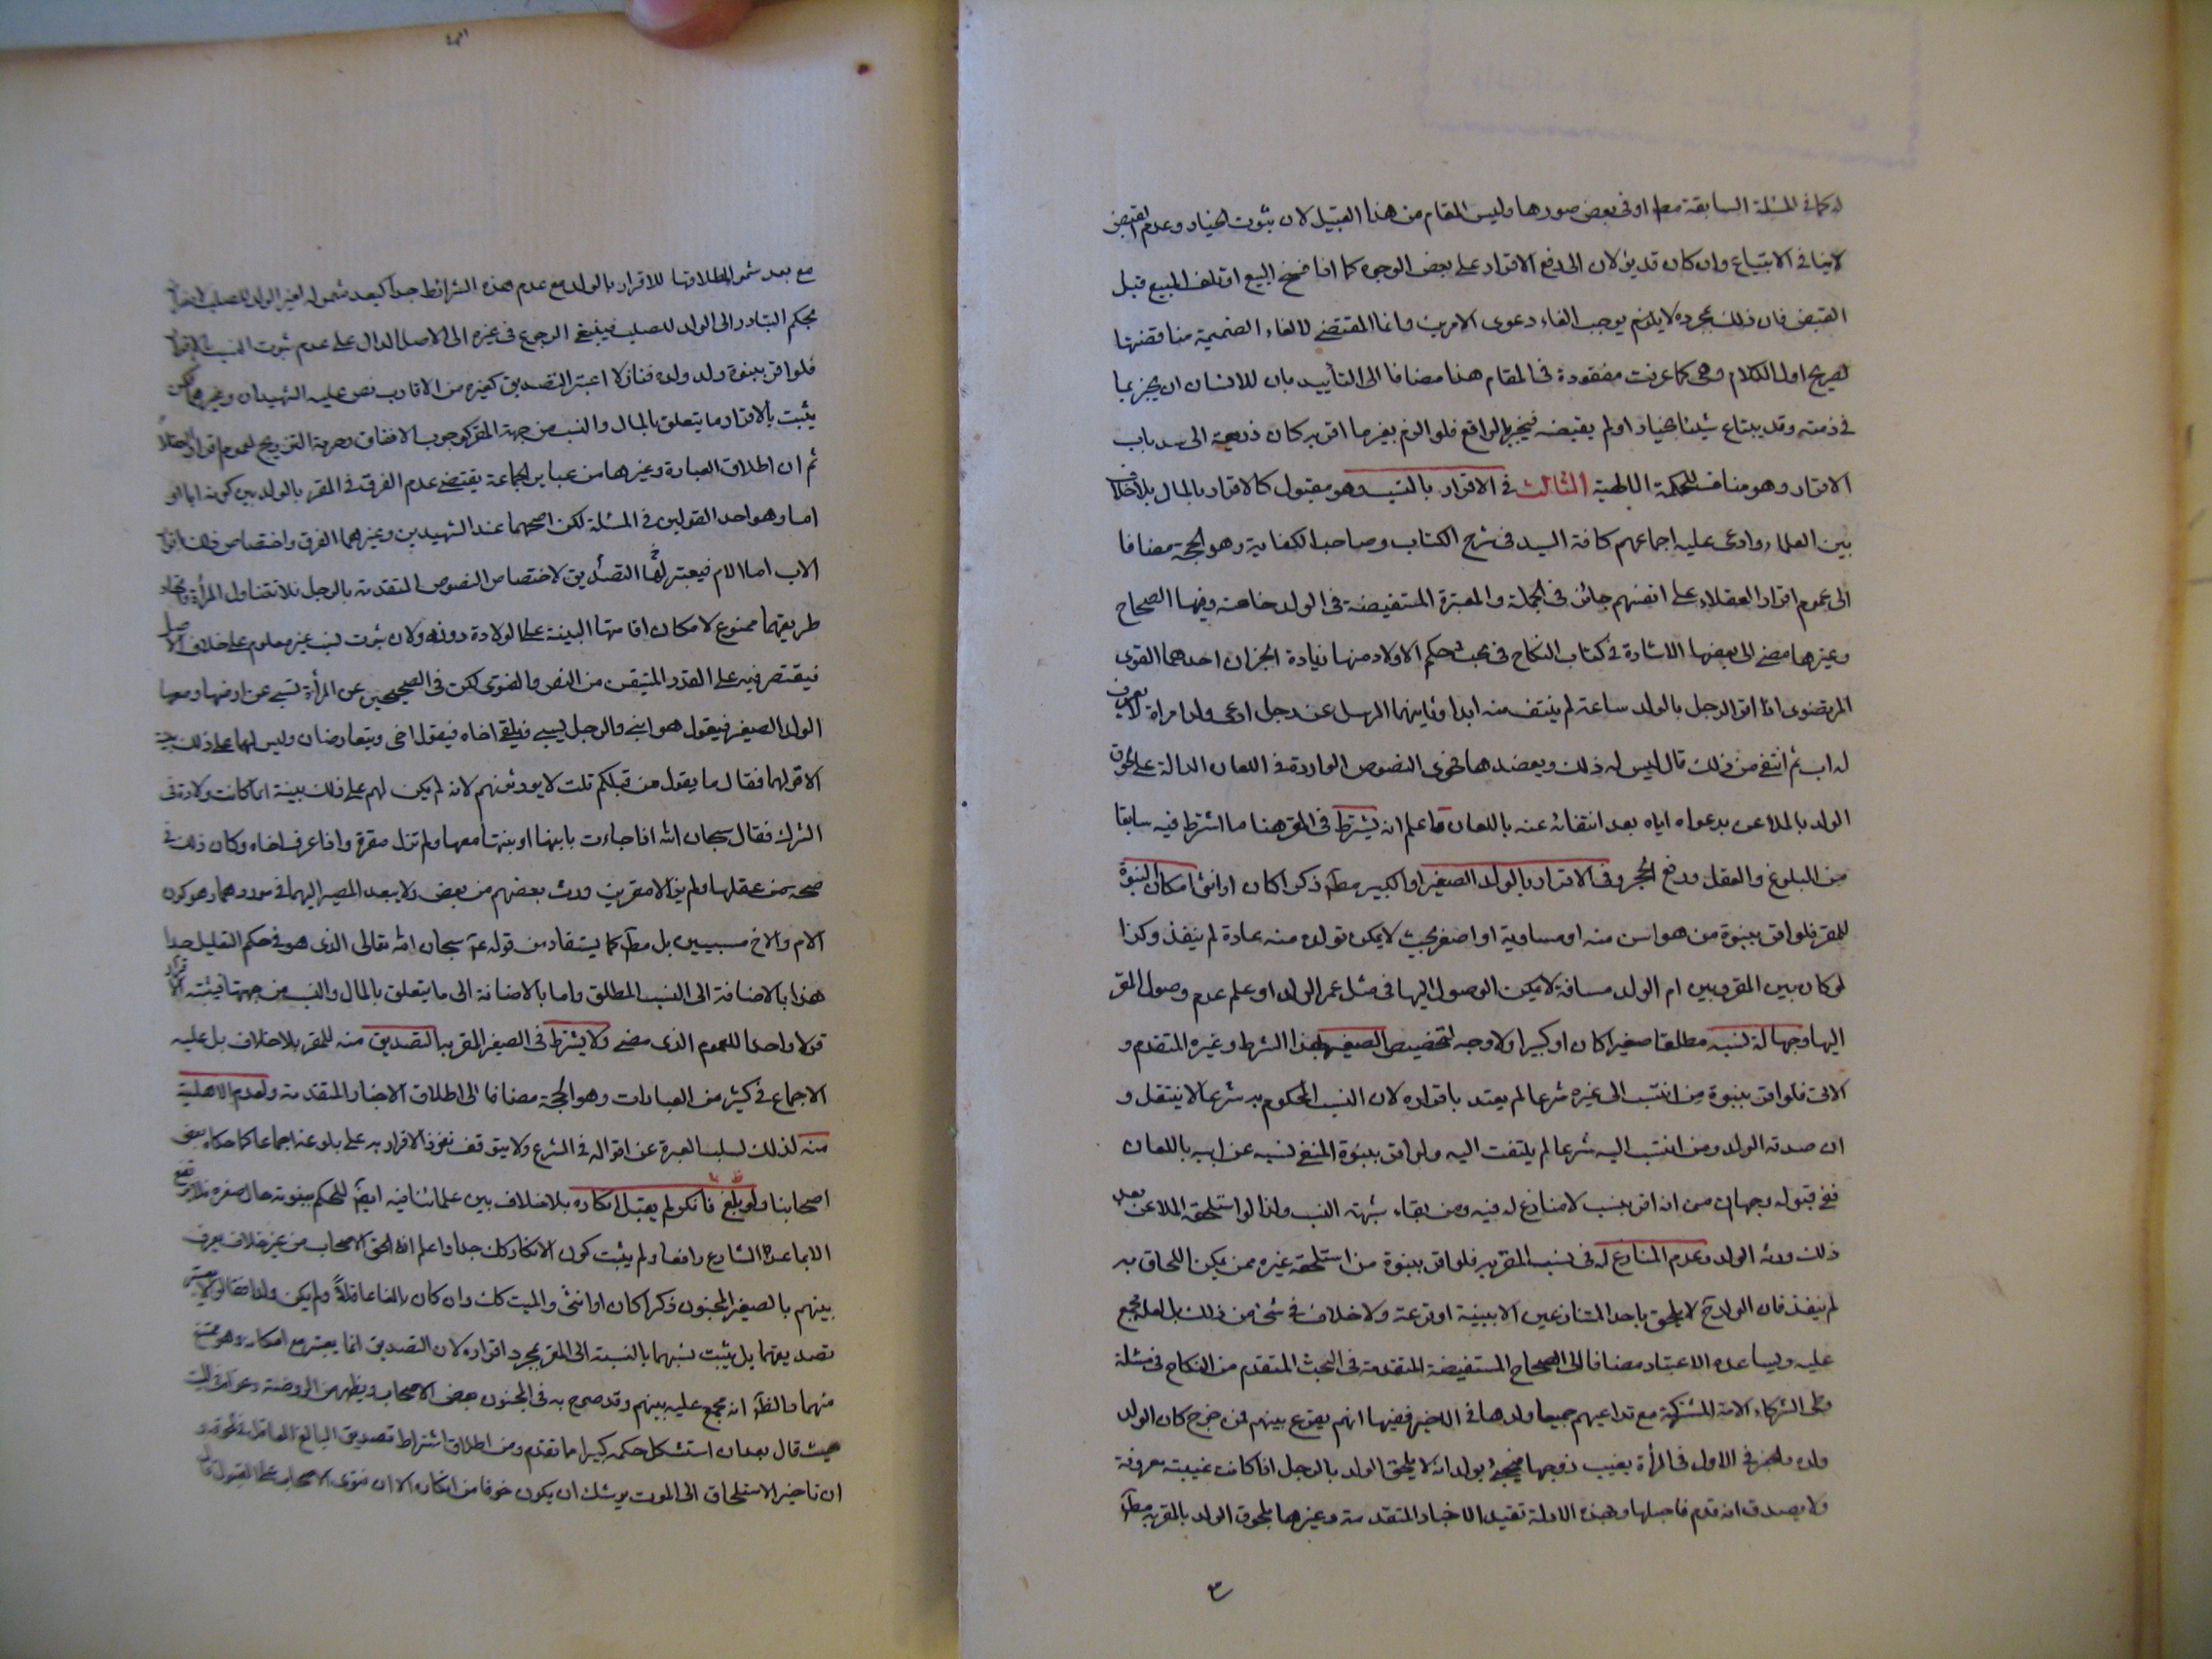 له كما في المسئلة السابقة مط او في بعض صورها وليس المقام من هذا القبيل لان ثبوت الخيار وعدم القبض
لاينافى الابتياع وان كان قد يؤلان الى رفع الاقرار على بعض الوجوه كما اذا فسخ البيع او تلف المبيع قبل
القبض فان ذلك بمجرده لا يلزم يوجب الغاء دعوى الامرين وانما المقتضى لالغاء الضميمة مناقضتها
لصريح اول الكلام وهى كما عرفت مفقودة في المقام هذا مضافا الى التأييد بان للانسان ان يخبر بما
في ذمته وقد يبتاع شيئا بخيار او لم يقبضه فيخبر بالواقع فلو الزم بغير ما اقر به كان ذريعة الى سد باب
الاقرار وهو مناف للحكمة الالهية الثالث في الاقرار بالنسب وهو مقبول كالاقرار بالمال بلاخلاف
بين العلماء وادعى عليه اجماعهم كافة السيد في شرح الكتاب وصاحب الكفاية وهو الحجة مضافا
الى عموم اقرار العقلاء على انفسهم جائز في الجملة والمعتبرة المستفيضة في الولد خاصة وفيها الصحاح
وغيرها مضى الى بعضها الاشارة في كتاب النكاح في بحث احكم الاولاد منها زيادة الخبران احدهما القوى
المرتضوى اذا اقر الرجل بالولد ساعة لم ينتف منه ابدا وثاينهما المرسل عن رجل ادعى ولد امراة لايعرف
له اب ثم انتفى من ذلك قال ليس له ذلك ويعضدها فحوى النصوص الواردة في اللعان الدالة على لحوق
الولد بالملاعن بدعواه اياه بعد انتفائه عنه باللعان واعلم انه يشترط في المقر هنا ما اشترط فيه سابقا
من البلوغ والعقل ورفع الحجر وفى الاقرار بالولد الصغير او الكبير مط ذكرا كان او انثى امكان البنوة
للمقر فلو اقر ببنوة من هو اسن منه او مساويه او اصغر بحيث لا يمكن تولده منه عادة لم ينفذ وكذا
لو كان بين المقر وبين ام الولد مسافة لا يمكن الوصول اليها في مثل عمر الولد او علم عدم وصول المقر
اليها وجهالة نسبه مطلقا صغيرا كان او كبيرا ولا وجه لتخصيص الصغير بهذا الشرط وغيره المتقدم و
الاتى فلو اقر ببنوة من انتسب الى غيره شرعا لم يعتد باقراره لان النسب المحكوم به شرعا لا ينتقل و
ان صدقه الولد ومن انتسب اليه شرعا لم يلتفت اليه ولو اقر ببنوة المنفى نسبه عن ابيه باللعان
ففى قبوله وجهان من انه اقر بنسب لامنازع له فيه ومن بقاء شبهة النسب ولذا لو استلحقه الملاعن بعد
ذلك ورثه الولد وعدم المنازع له في نسب المقر به فلو اقر ببنوة من استلحقه غيره ممن يمكن اللحاق به
لم ينفذ فان الولد ح لا يلحق باحد المتنازعين الا ببينة او قرعة ولا خلاف في شئ من ذلك بل لعله مجمع
عليه ويساعده الاعتبار مضافا الى الصحاح المستفيضة المتقدمة في البحث المتقدم من النكاح في مسئلة
وطى الشركاء الامة المشتركة مع تداعيهم جميعا ولدها في الاخير ففيها انهم يقرع بينهم فمن خرج كان الولد
ولده والخبر في الاول في المرأة يغيب زوجها فتجئ بولد انه لا يلحق الولد بالرجل اذا كانت غيبته معروفة
ولا يصدق انه قدم فاحبلها وبهذه الادلة تقيد الاخبار المتقدمة وغيرها بلحوق الولد بالمقر به مط
مع بعد شمول اطلاقها للاقرار بالولد مع عدم هذه الشرائط جدا كبعد شموله لغير الولد للصلب
بحكم التبادر الى الولد للصلب فينبغى الرجوع في غيره الى الاصل الدال على عدم ثبوت النسب بالاقرار
فلو اقر ببنوة ولد ولده فنازلا اعتبر التصديق كغيره من الاقارب نص عليه الشهيدان وغيرهما لكن
يثبت بالاقرار ما يتعلق بالمال والنسب من جهة المقر كوجوب الانفاق وحرمة التزويج لعموم اقرار العقلاء
ثم ان اطلاق العبارة وغيرها من عباير الجماعة يقتضى عدم الفرق في المقر بالولد بين كونه ابا او
اما وهو احد القولين في المسئلة لكن اصحهما عند الشهيدين وغيرهما الفرق واختصاص ذلك باقرار
الاب اما الام فيعتبر لها التصديق لاختصاص النصوص المتقدمة بالرجل فلا تتناول المرأة واتحاد
طريقهما ممنوع لامكان اقامتها البينة على الولادة دونه ولان ثبوت نسب غير معلوم على خلاف الاصل
فيقتصر فيه على القدر المتيقن من النص والفتوى لكن في الصحيحين عن المرأة تسبى عن ارضها ومعها
الولد الصغير فيقول هو ابنى والرجل يسبى فيلقى اخاه فيقول اخى ويتعارفان وليس لهما على ذلك بينة
الا قولهما فقال ما يقول من قبلكم قلت لا يورثونهم لانه لم يكن لهم على ذلك بينة انما كانت ولادة في
الشرك فقال سبحان الله اذا جاءت بابنها او بنتها معها ولم تزل مقرة واذا عرف اخاه وكان ذلك في
صحة من عقلهما ولم يزالا مقرين ورث بعضهم من بعض ولا يبعد المصير اليهما في موردهما وهو كون
الام والاخ مسبيين بل مط كما يستفاد من قوله ع سبحان الله تعالى الذى هو في حكم التعليل جدا
هذا بالاضافة الى النسب المطلق واما بالاضافة الى ما يتعلق بالمال والنسب من جهتها فيثبت
قولا واحدا للعموم الذى مضى ولا يشترط في الصغير المقر به التصديق منه للمقر بلا خلاف بل عليه
الاجماع في كثير من العبارات وهو الحجة مضافا الى اطلاق الاخبار المتقدمة ولعدم الاهلية
منه لذلك لسلب العبرة عن اقواله في الشرع ولا يتوقف نفوذ الاقرار به على بلوغه اجماعا كما حكاه بعض
اصحابنا ولو بلغ فانكر لم يقبل انكاره بلاخلاف بين علمائنا فيه ايض للحكم ببنوته حال صغره فلا يرتفع
الا بما عده الشارع رافعا ولم يثبت كون الانكار كك جدا واعلم انه الحق الاصحاب من غير خلاف يعرف
بينهم بالصغير المجنون ذكرا كان او انثى والميت كك وان كان بالغا عاقلاً ولم يكن ولدا فقالوا لا يعتبر
تصديقهما بل يثبت نسبهما بالنسبة الى المقر بمجرد اقراره لان التصديق انما يعتبر مع امكانه وهو ممتنع
منهما والظ انه مجمع عليه بينهم وقد صرح به في المجنون بعض الاصحاب ويظهر من الروضة دعواه في الميت
حيث قال بعد ان استشكل حكمه كبيرا مما تقدم ومن اطلاق اشتراط تصديق البالغ العاقل في لحوقه و
ان تاخير الاستلحاق الى الموت يوشك ان يكون خوفا من انكاره الا ان فتوى الاصحاب على القبول